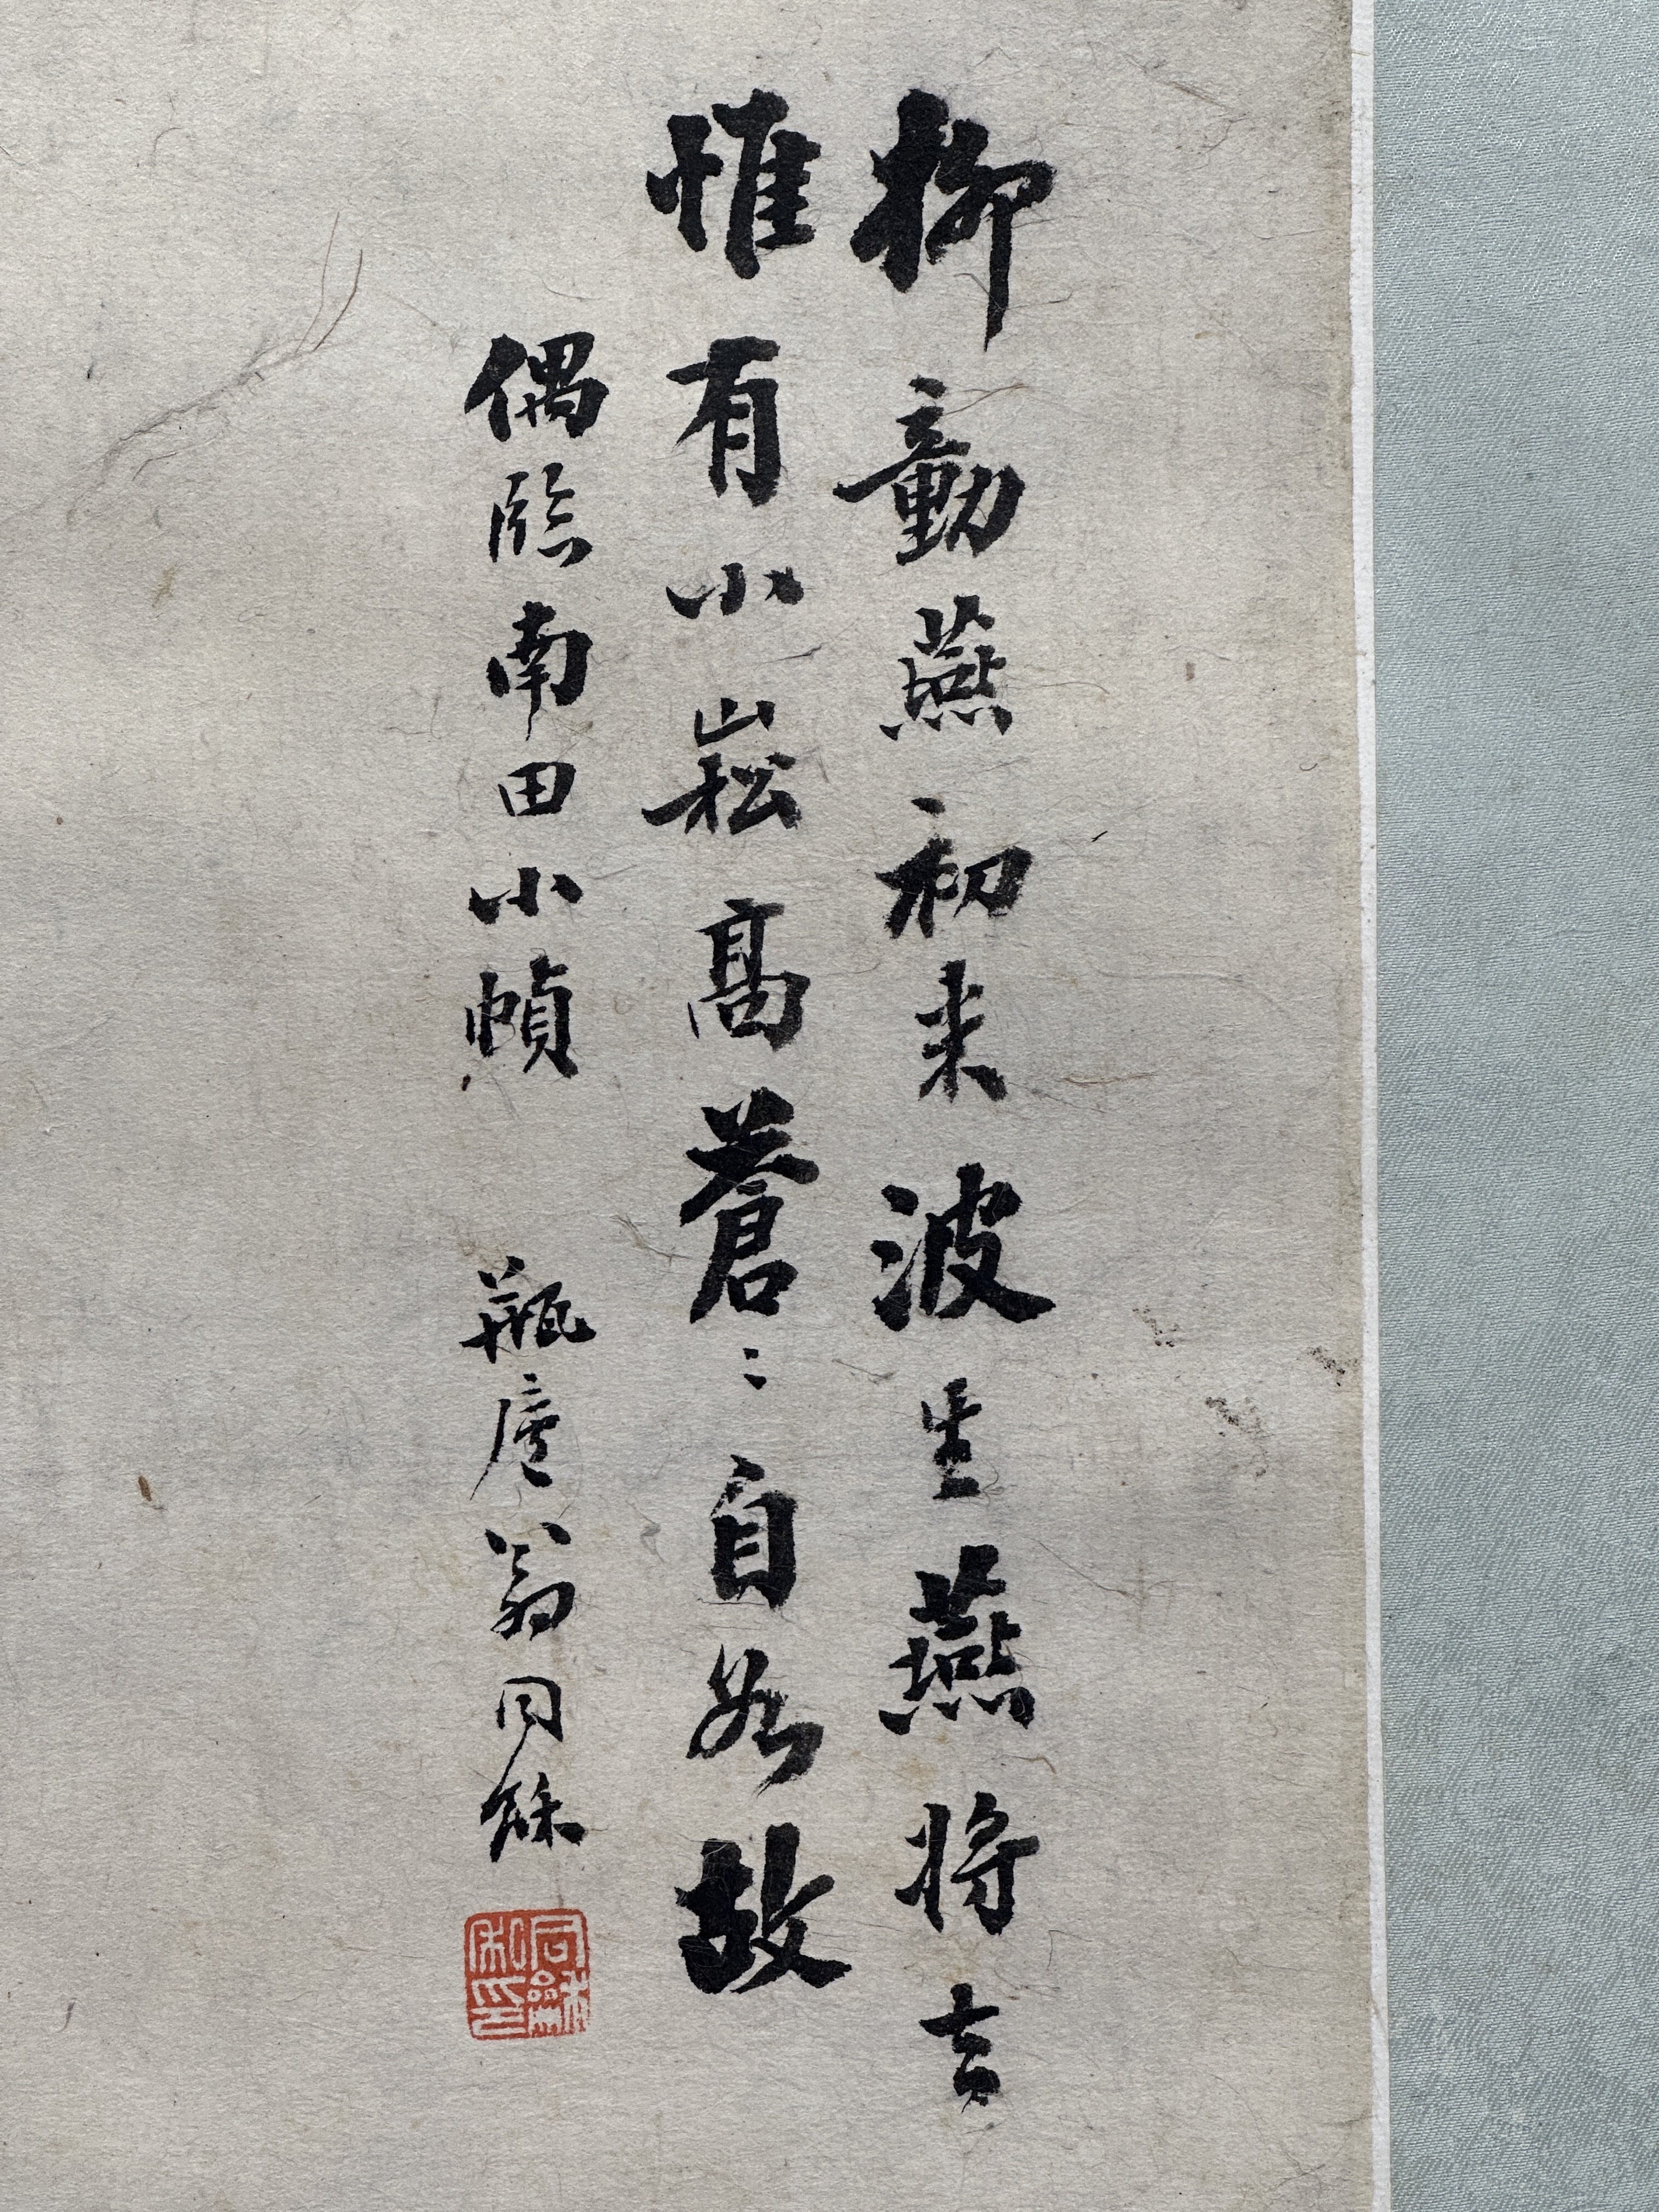 柳動燕初来波生燕將去
惟有小崧高蒼〻自如故
偶臨南田小幀 瓶廬翁同龢
同龢私印